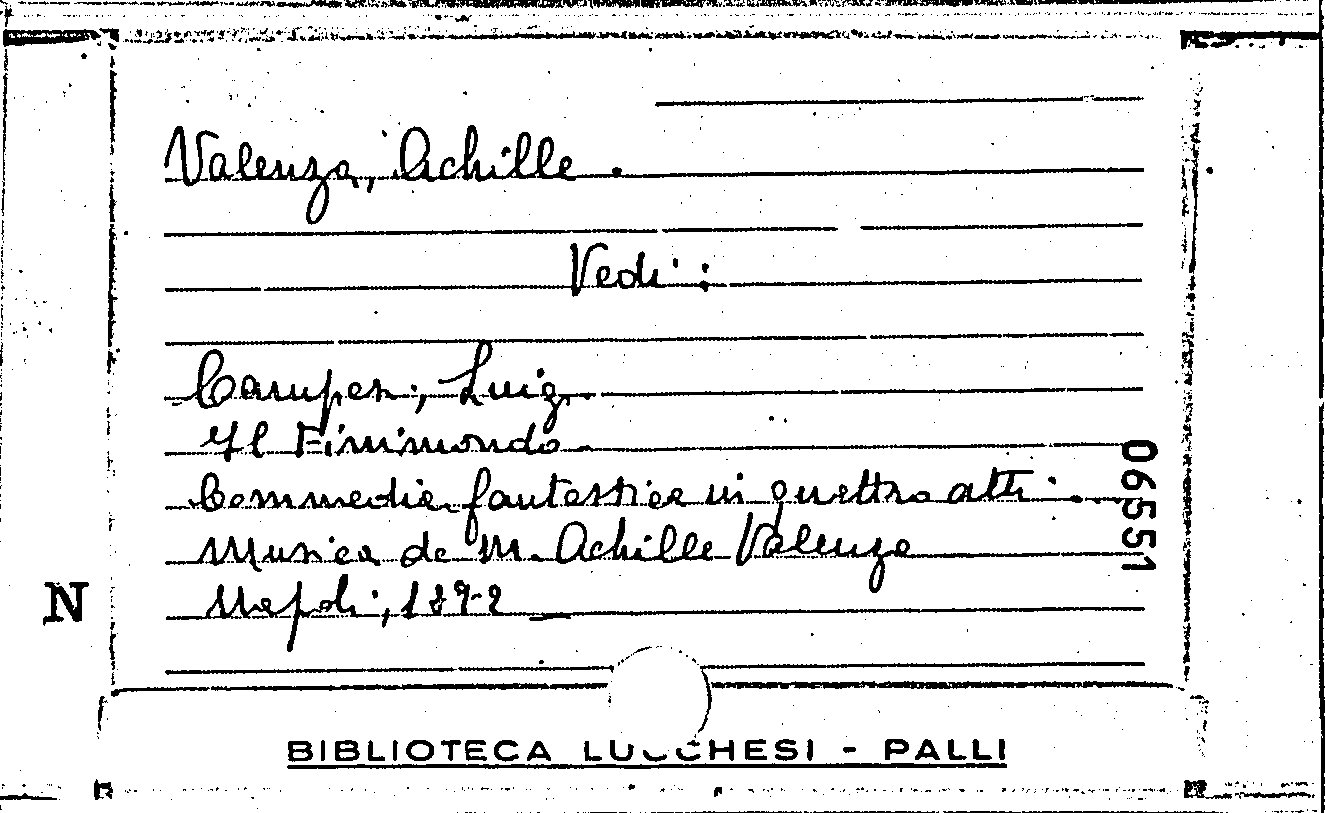 Valenza, Achille.
Vedi:
Campesi, Luigi
Il Finimondo
Commedia fantastica in quattro atti.
Musica de M. Achille Valenza
Napoli, 1892
06551
N
BIBLIOTECA LUCCHESI - PALLI